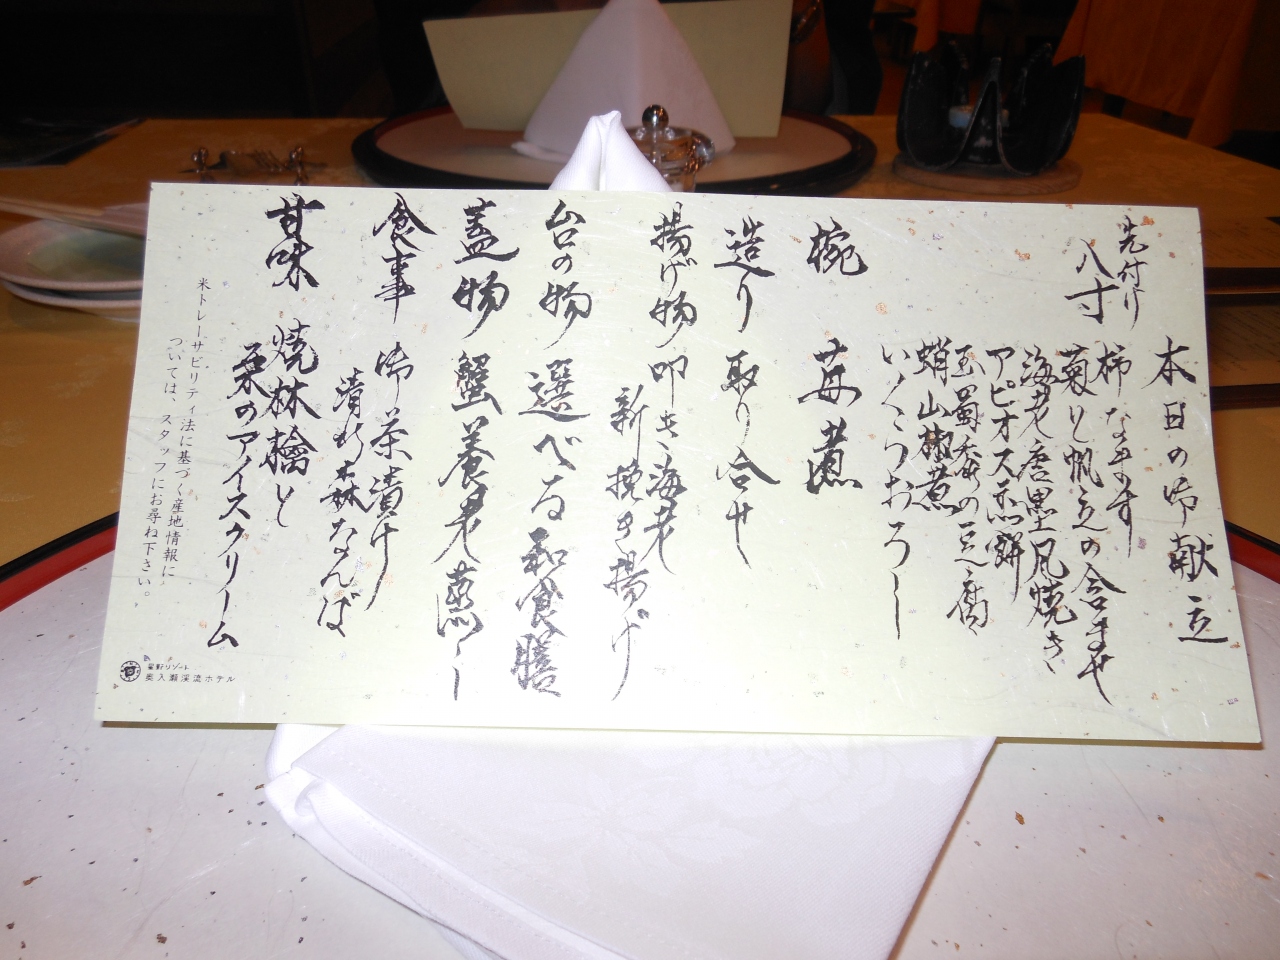 本日の御献立
先付け
柿なます
八寸
菊と帆立の合ませ
海老唐墨風焼き
アピオス煎餅
玉蜀黍の豆腐
蛸山椒煮
いくらおろし
椀 苺煮
造り 取り合せ
揚げ物 叩き海老
新挽き揚げ
台の物 選べる和食膳
蓋物 蟹養老蒸し
食事 御茶漬け
清水森なんば
甘味 焼林檎と
栗のアイスクリーム
米トレーサビリティ法に基づく産地情報に
ついては、スタッフにお尋ね下さい。
星野リゾート
奥入瀬渓流ホテル